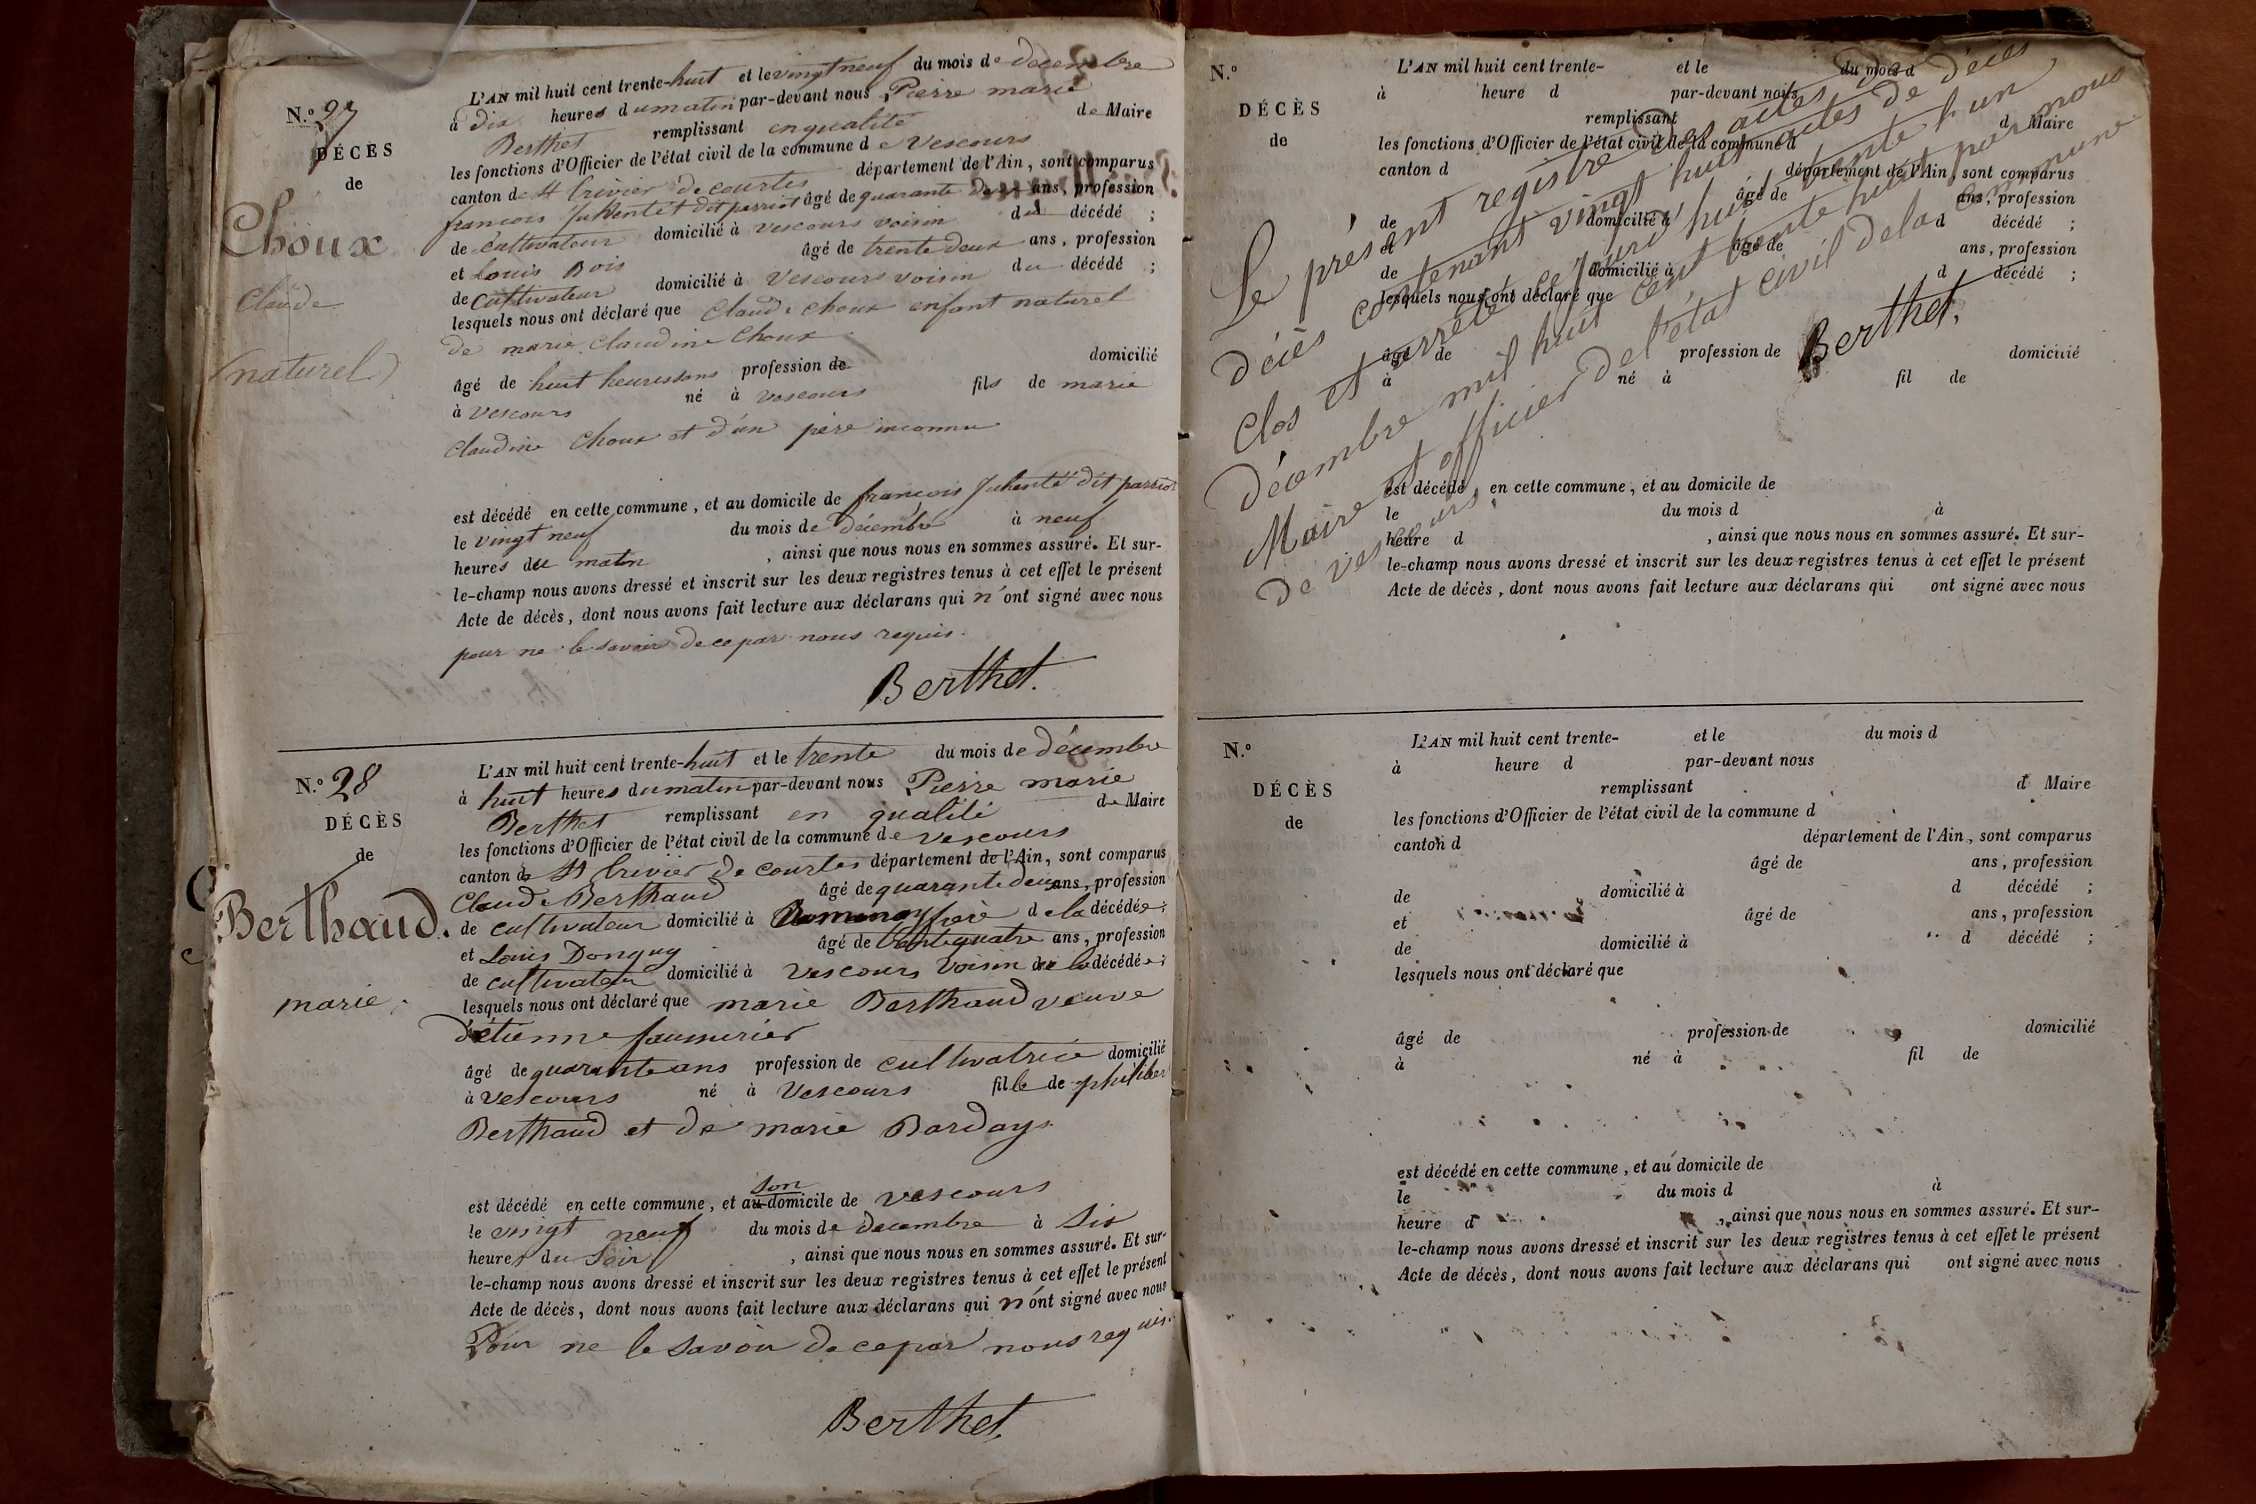 N.º 27
DÉCÈS
de
Choux
Claude
(naturel)
L'AN mil huit cent trente-huit et le vingt neuf du mois de décembre
à dix heures du matin par-devant nous, Pierre marie
Berthet remplissant en qualité de Maire
les fonctions d'Officier de l'état civil de la commune de Vescours
canton de St trivier de courtes département de l'Ain, sont comparus
francois dit perriot âgé de quarante deux ans, profession
de cultivateur domicilié à vescours voisin du décédé ;
et Louis Bois âgé de trente deux ans, profession
de cultivateur domicilié à Vescours voisin du décédé ;
lesquels nous ont déclaré que Claude choux enfant naturel
de marie Claudine Choux
âgé de huit heures sans profession de domicilié
à vescours né à vescours fils de marie
Claudine Choux et d'un père inconnu
est décédé en cette commune, et au domicile de francois dit perriot
le vingt neuf du mois de décembre à neuf
heures du matin , ainsi que nous nous en sommes assuré. Et sur-
le-champ nous avons dressé et inscrit sur les deux registres tenus à cet effet le présent
Acte de décès, dont nous avons fait lecture aux déclarans qui n'ont signé avec nous
pour ne le savoir de ce par nous requis.
Berthet.
N.º 28
DÉCÈS
de
Berthaud.
marie.
L'AN mil huit cent trente-huit et le trente du mois de décembre
à huit heures du matin par-devant nous Pierre marie
Berthet remplissant en qualité de Maire
les fonctions d'Officier de l'état civil de la commune de vescours
canton de St trivier de courtes département de l'Ain, sont comparus
Claude Berthaud âgé de quarante deux ans, profession
de cultivateur domicilié à Romenay frère de la décédée ;
et Louis Donguy âgé de trente quatre ans, profession
de cultivateur domicilié à Vescours voisin de la décédée ;
lesquels nous ont déclaré que marie Berthaud veuve
d'étienne faumerier
âgé de quarante ans profession de cultivatrice domicilié
à Vescours né à Vescours fille de philiber
Berthaud et de marie Barday
est décédé en cette commune, et au son domicile de vescours
le vingt neuf du mois de decembre à Six
heures du Soir , ainsi que nous nous en sommes assuré. Et sur-
le-champ nous avons dressé et inscrit sur les deux registres tenus à cet effet le présent
Acte de décès, dont nous avons fait lecture aux déclarans qui n'ont signé avec nous
Pour ne le savoir de ce par nous requis.
Berthet.
N.º
DÉCÈS
de
L'AN mil huit cent trente- et le du mois d
à heure d par-devant nous
remplissant d Maire
les fonctions d'Officier de l'état civil de la commune d
canton d département de l'Ain, sont comparus
âgé de ans, profession
de domicilié à d décédé ;
et âgé de ans, profession
de domicilié à d décédé ;
lesquels nous ont déclaré que
âgé de profession de domicilié
à né à fil de
est décédé en cette commune, et au domicile de
le du mois d à
heure d , ainsi que nous nous en sommes assuré. Et sur-
le-champ nous avons dressé et inscrit sur les deux registres tenus à cet effet le présent
Acte de décès, dont nous avons fait lecture aux déclarans qui ont signé avec nous
Le présent registre des actes de
décès contenant vingt huit actes de décès
Clos et arrêté ce jourd'hui trente & un
décembre mil huit cent trente huit par nous
Maire et officier de l'état civil de la commune
de vescours.
Berthet.
N.º
DÉCÈS
de
L'AN mil huit cent trente- et le du mois d
à heure d par-devant nous
remplissant d Maire
les fonctions d'Officier de l'état civil de la commune d
canton d département de l'Ain, sont comparus
âgé de ans, profession
de domicilié à d décédé ;
et âgé de ans, profession
de domicilié à d décédé ;
lesquels nous ont déclaré que
âgé de profession de domicilié
à né à fil de
est décédé en cette commune, et au domicile de
le du mois d à
heure d , ainsi que nous nous en sommes assuré. Et sur-
le-champ nous avons dressé et inscrit sur les deux registres tenus à cet effet le présent
Acte de décès, dont nous avons fait lecture aux déclarans qui ont signé avec nous